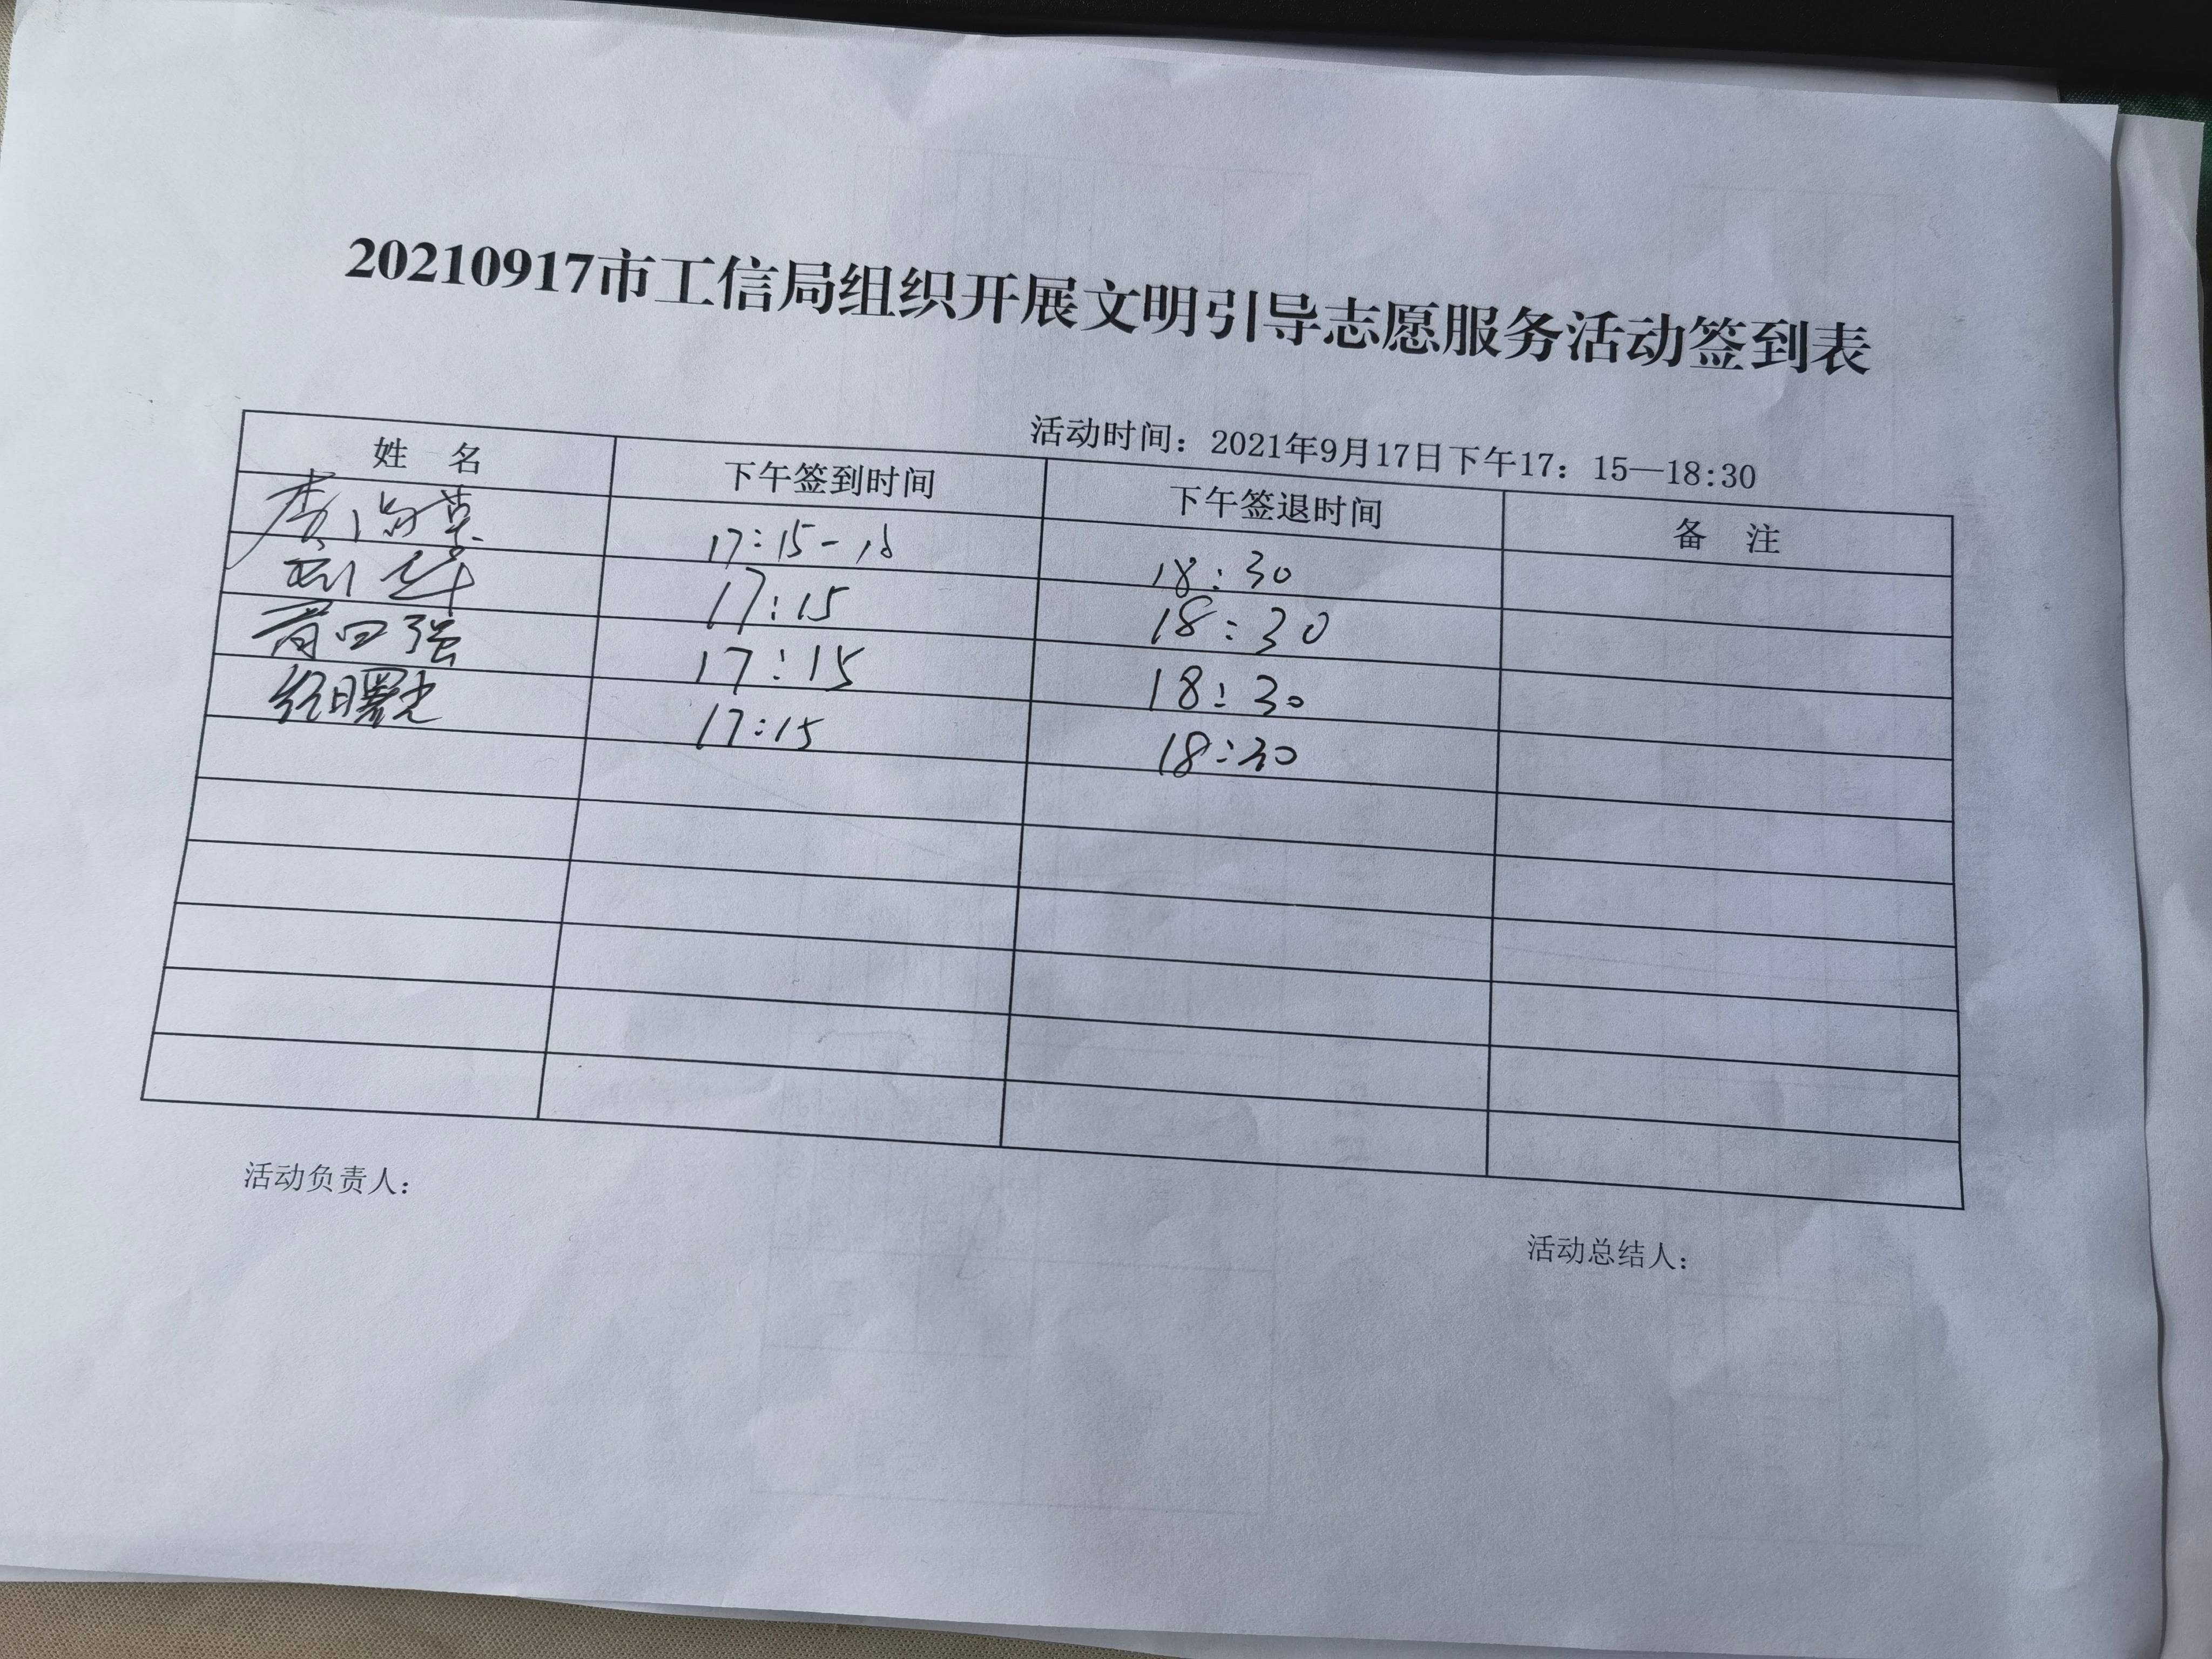 20210917市工信局组织开展文明引导志愿服务活动签到表
活动时间：2021年9月17日下午17：15—18:30
姓 名 下午签到时间 下午签退时间 备 注
17:15-18 18:30
17:15 18:30
强 17:15 18:30
曙光 17:15 18:30
活动负责人：
活动总结人：